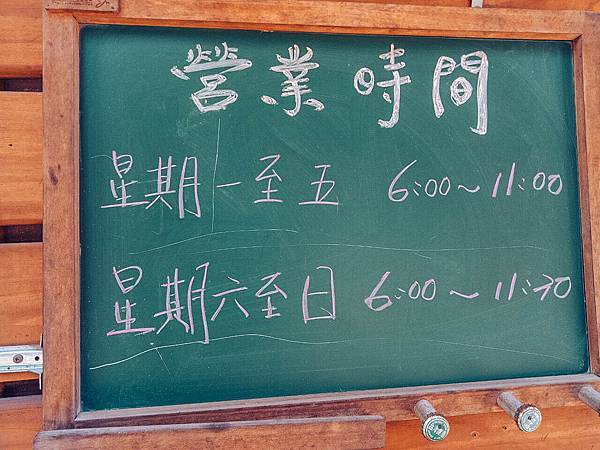 營業時間
星期一至五 6:00~11:00
星期六至日 6:00~11:30